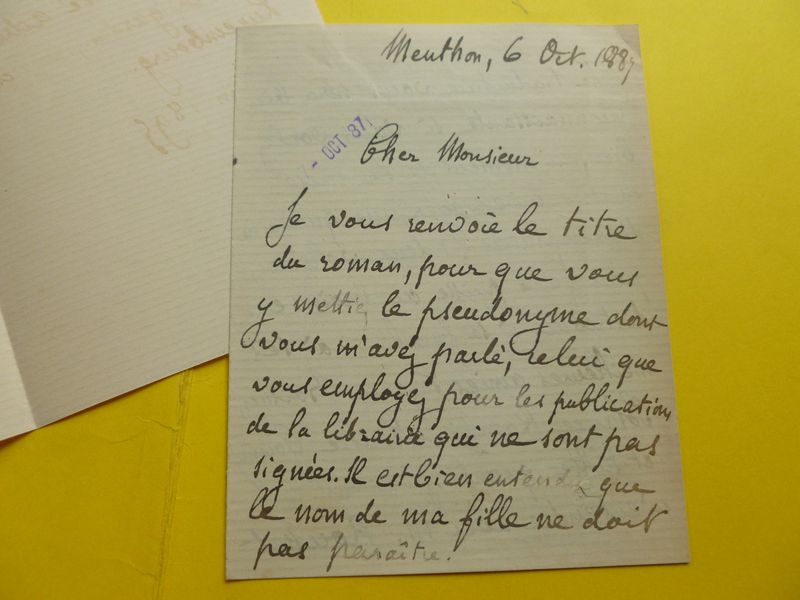 Luxembourg
895
Menthon, 6 Oct. 1887
7 - OCT 87
Cher Monsieur
Je vous renvoie le titre
du roman, pour que vous
y mettiez le pseudonyme dont
vous m'avez parlé, celui que
vous employez pour les publications
de la librairie qui ne sont pas
signées. Il est bien entendu que
le nom de ma fille ne doit
pas paraître.